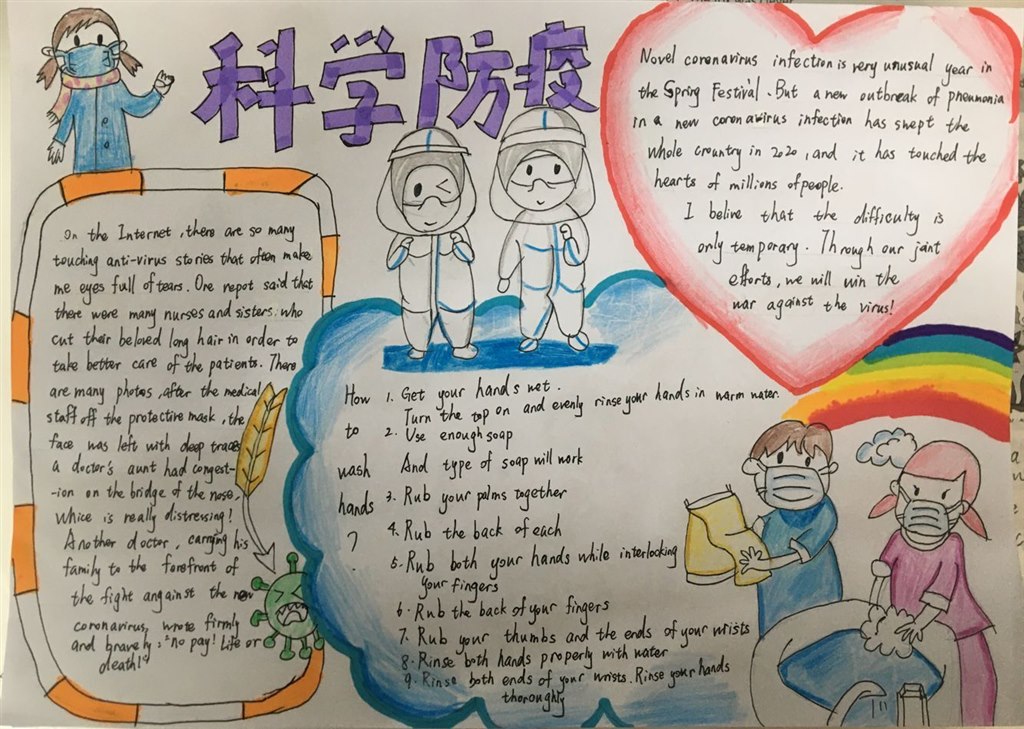 科学防疫
Novel coronavirus infection is very unusual year in
the Spring Festival. But a new outbreak of pneumonia
in a new coronavirus infection has swept the
whole crountry in 2020, and it has touched the
hearts of millions of people.
I belive that the difficulty is
only temporary. Through our joint
efforts, we will win the
war against the virus!
On the Internet, there are so many
touching anti-virus stories that often make
me eyes full of tears. One repot said that
there were many nurses and sisters. who
cut their beloved long hair in order to
take better care of the patients. There
are many photos, after the medical
staff off the protective mask, the
face was left with deep traces
a doctor's aunt had congest-
-ion on the bridge of the nose,
Whice is really distressing!
Another doctor, carrying his
family to the forefront of
the fight angainst the new
coronavirus, wrote firmly
and bravely: "no pay! Life or
death!"
How to wash hands ?
1. Get your hands wet.
Turn the top on and evenly rinse your hands in warm water.
2. Use enough soap
And type of soap will work
3. Rub your palms together
4. Rub the back of each
5. Rub both your hands while interlocking
your fingers
6. Rub the back of your fingers
7. Rub your thumbs and the ends of your wrists
8. Rinse both hands properly with water
9. Rinse both ends of your wrists. Rinse your hands
thoroughly